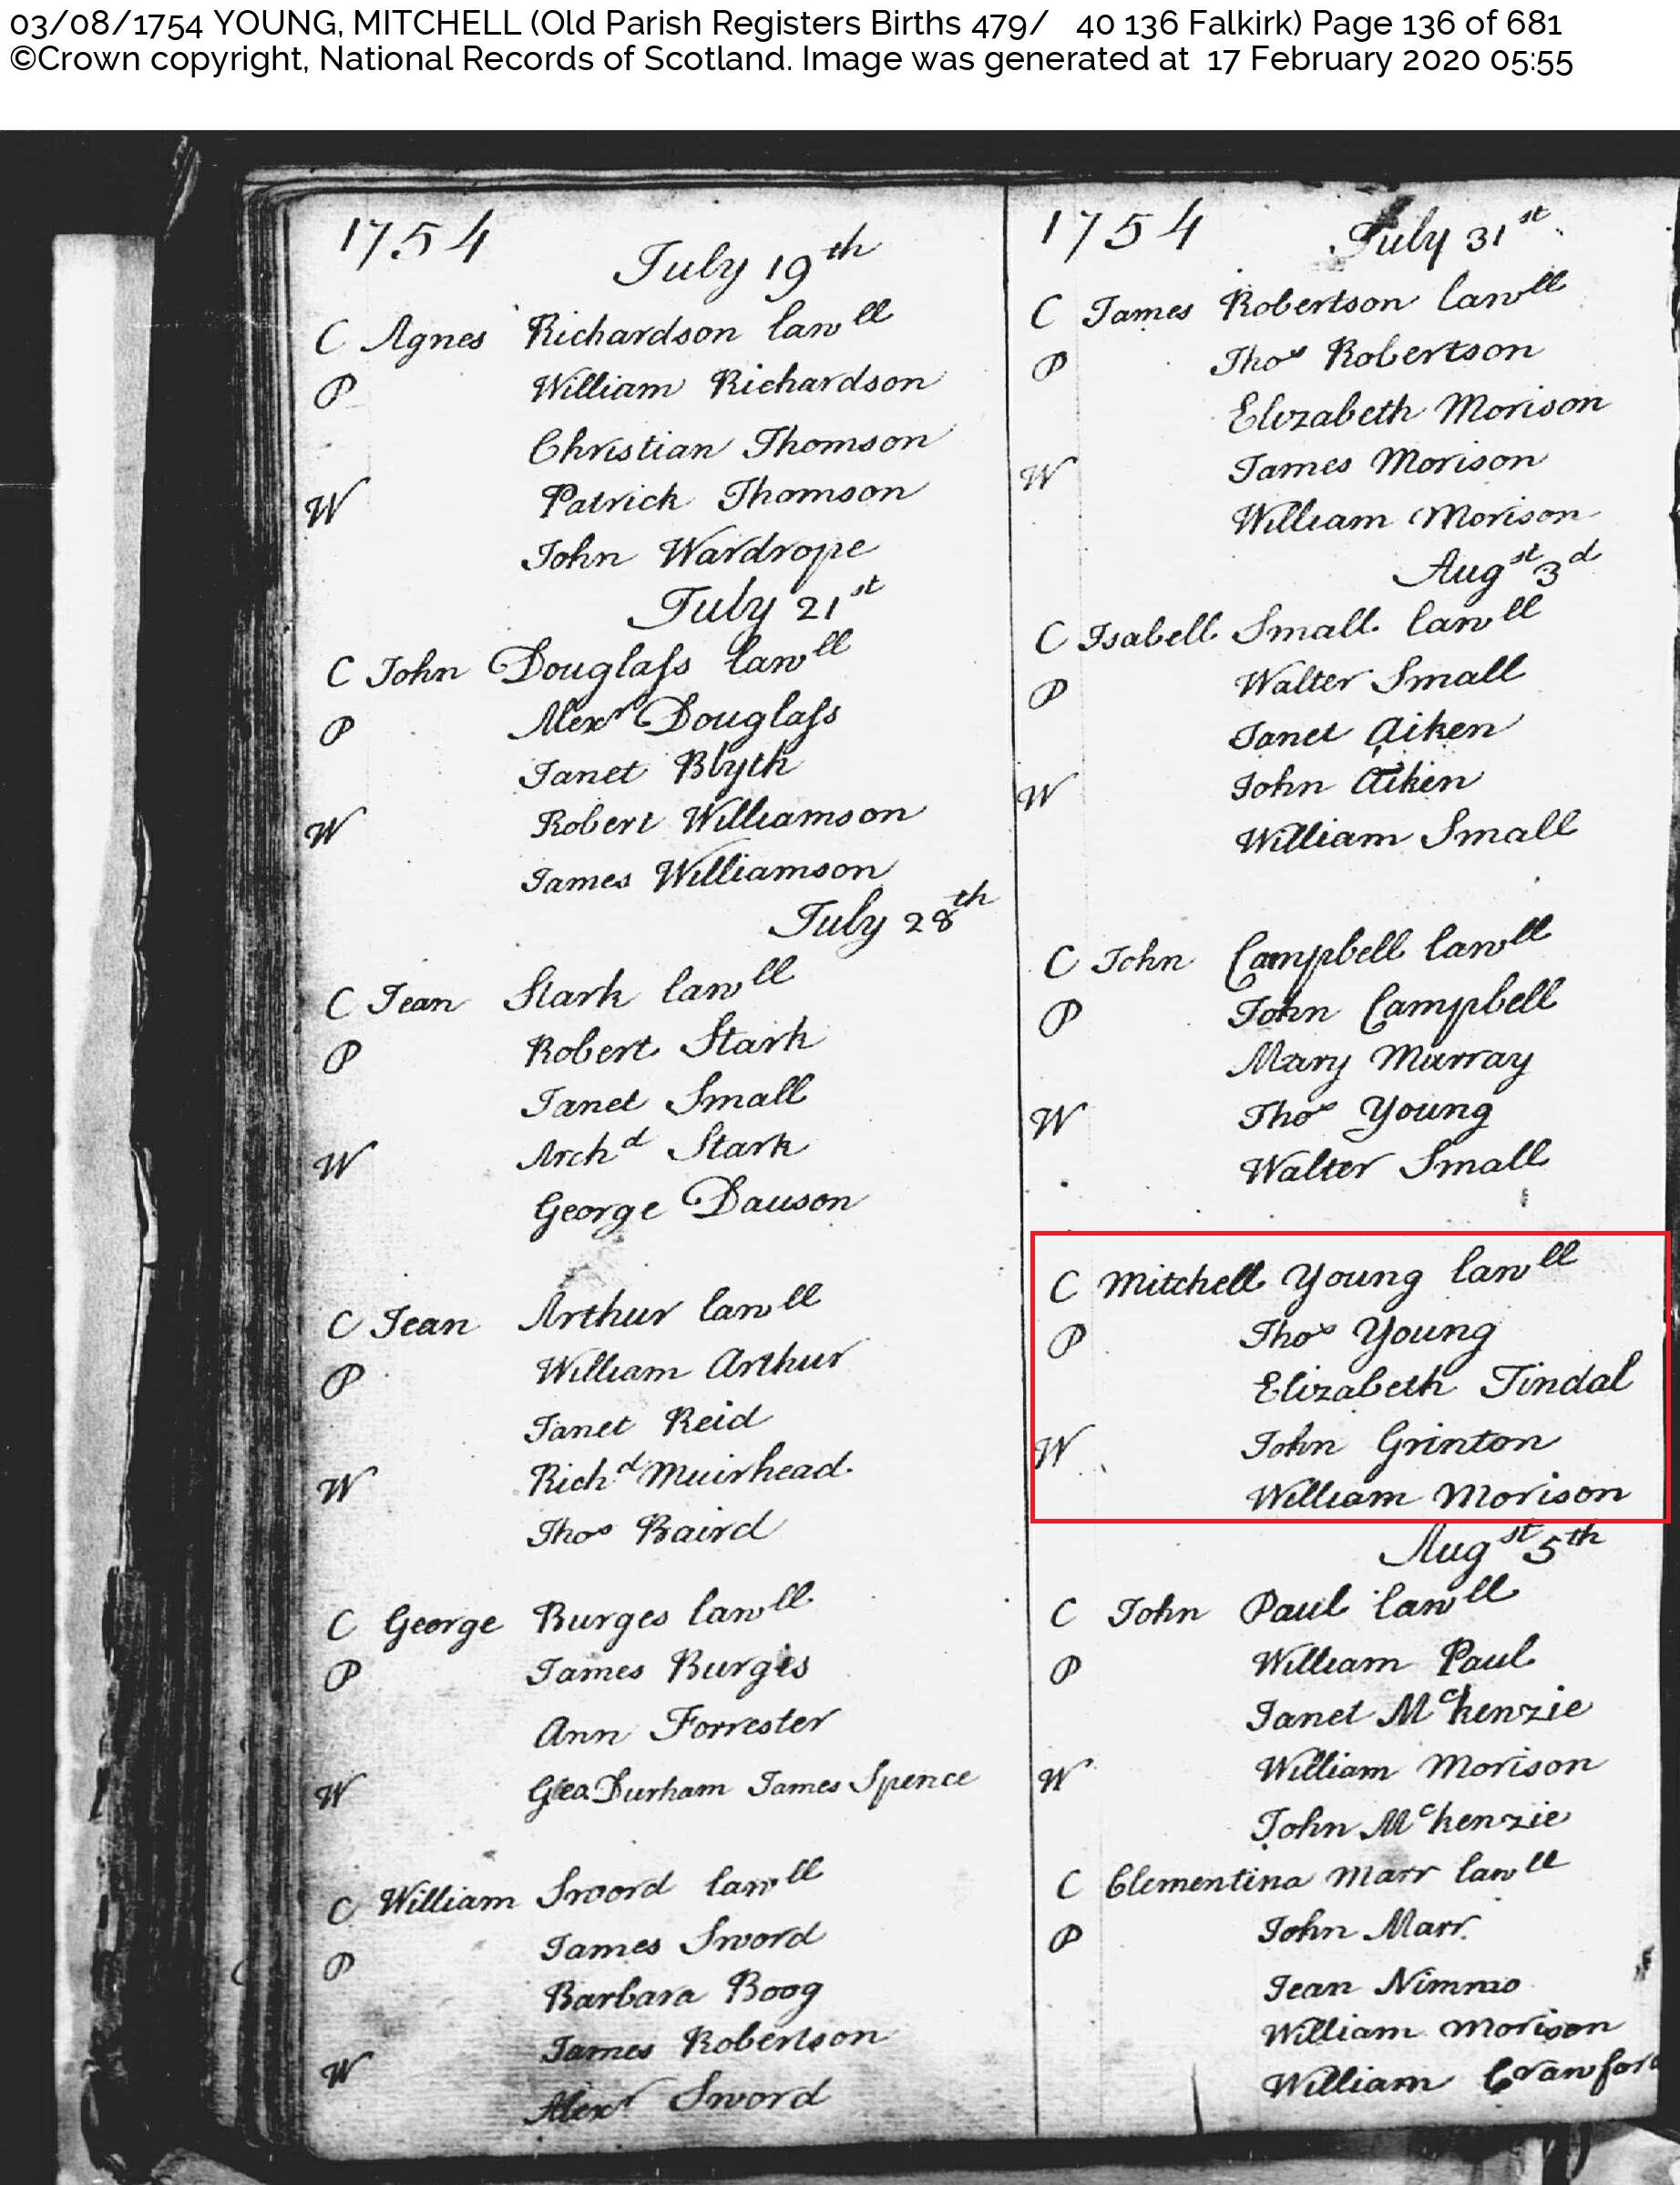 03/08/1754 YOUNG, MITCHELL (Old Parish Registers Births 479/ 40 136 Falkirk) Page 136 of 681
©Crown copyright, National Records of Scotland. Image was generated at 17 February 2020 05:55
1754
July 19th
C Agnes Richardson lawll
P William Richardson
Christian Thomson
W Patrick Thomson
John Wardrope
July 21st
C John Douglass lawll
P Alexr Douglass
Janet Blyth
W Robert Williamson
James Williamson
July 28th
C Jean Stark lawll
P Robert Stark
Janet Small
W Archd Stark
George Dauson
C Jean Arthur lawll
P William Arthur
Janet Reid
W Richd Muirhead
Thos Baird
C George Burges lawll
P James Burges
Ann Forrester
W Geo Durham James Spence
C William Sword lawll
P James Sword
Barbara Boog
W James Robertson
Alexr Sword
1754
July 31st
C James Robertson lawll
P Thos Robertson
Elizabeth Morison
W James Morison
William Morison
Augst 3d
C Isabell Small lawll
P Walter Small
Janet Aiken
W John Aiken
William Small
C John Campbell lawll
P John Campbell
Mary Murray
W Thos Young
Walter Small
C Mitchell Young lawll
P Thos Young
Elizabeth Tindal
W John Grinton
William Morison
Augst 5th
C John Paul lawll
P William Paul
Janet Mckenzie
W William Morison
John Mckenzie
C Clementina Marr lawll
P John Marr
Jean Nimmo
William Morison
William Crawford